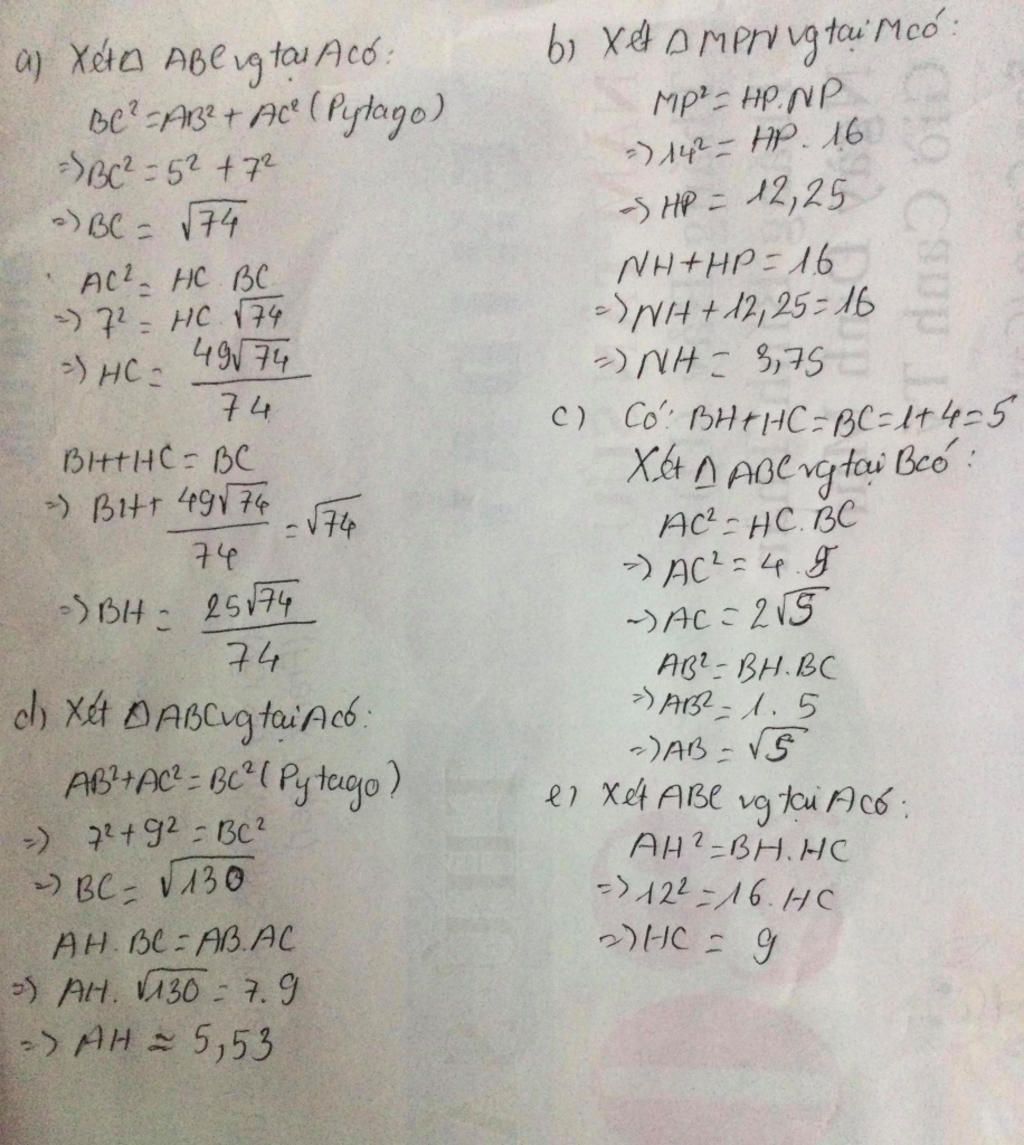 a) Xét Δ ABC vg tại A có:
BC² = AB² + AC² (Pytago)
=> BC² = 5² + 7²
=> BC = √74
AC² = HC BC
=> 7² = HC √74
=> HC = 49√74 / 74
BH + HC = BC
=> BH + 49√74 / 74 = √74
=> BH = 25√74 / 74
d) Xét Δ ABC vg tại A có:
AB² + AC² = BC² (Pytago)
=> 7² + 9² = BC²
=> BC = √130
AH. BC = AB. AC
=> AH. √130 = 7. 9
=> AH ≈ 5,53
b) Xét Δ MPN vg tại M có:
MP² = HP. NP
=> 14² = HP. 16
=> HP = 12,25
NH + HP = 16
=> NH + 12,25 = 16
=> NH = 3,75
c) Có: BH + HC = BC = 1 + 4 = 5
Xét Δ ABC vg tại B có:
AC² = HC. BC
=> AC² = 4. 5
=> AC = 2√5
AB² = BH. BC
=> AB² = 1. 5
=> AB = √5
e) Xét ABC vg tại A có:
AH² = BH. HC
=> 12² = 16. HC
=> HC = 9